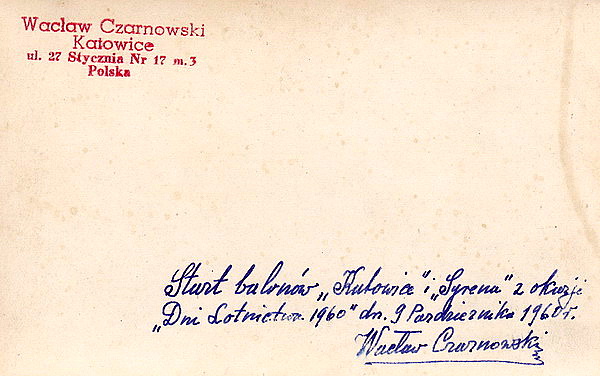 Wacław Czarnowski
Katowice
ul. 27 Stycznia Nr 17 m. 3
Polska
Start balonów „Katowice" i „Syrena" z okazji
„Dni Lotnictwa 1960" dn. 9 Października 1960 r.
Wacław Czarnowski